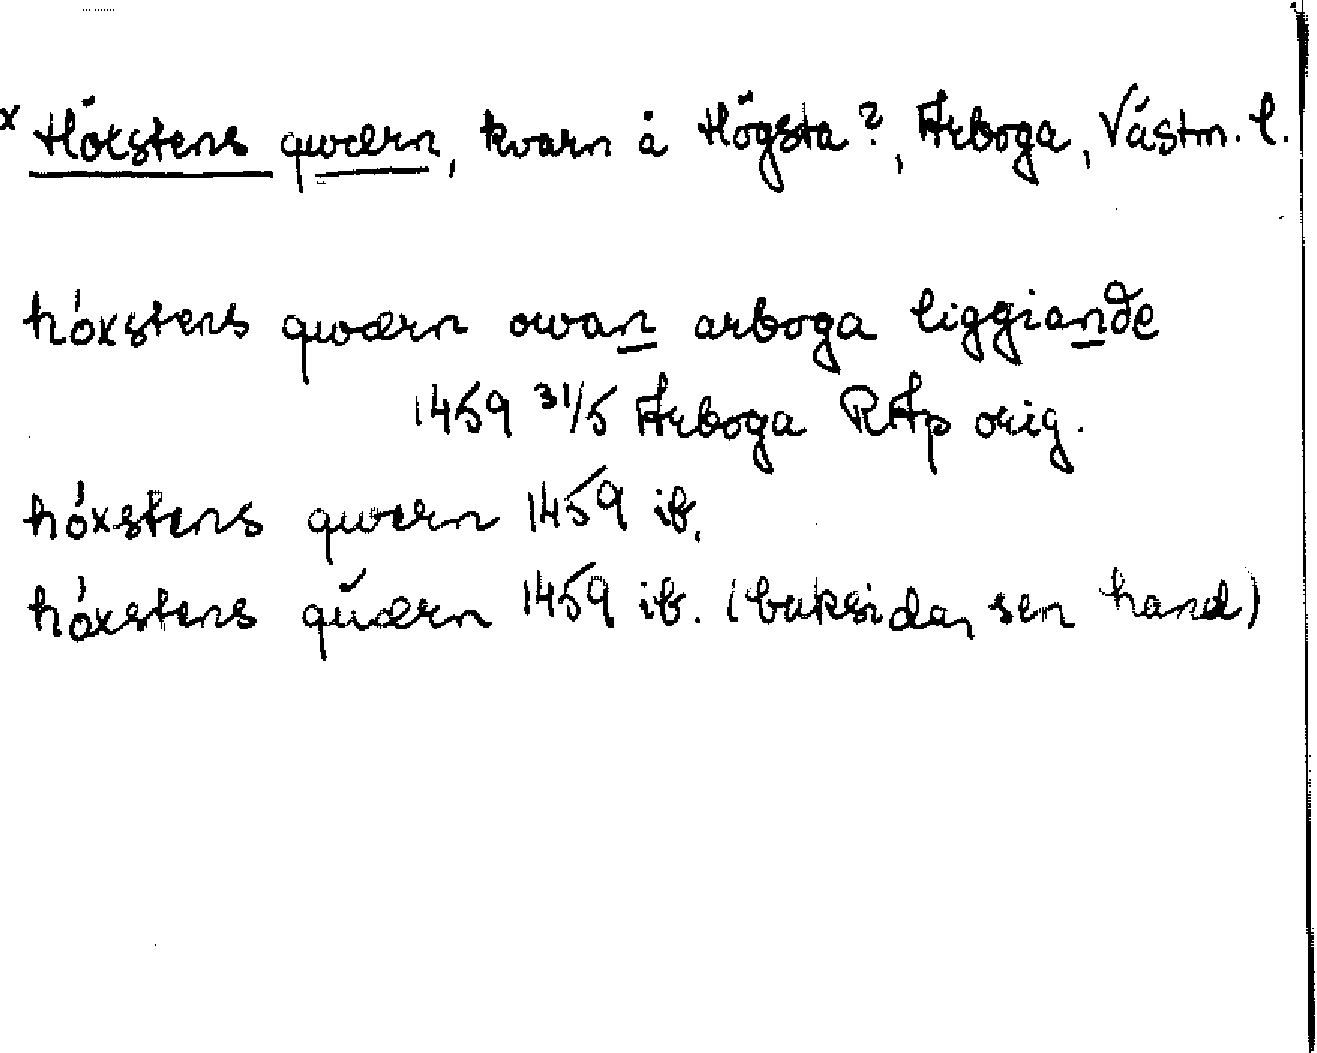 x Höxstens qwærn, kvarn å Högsta?, Arboga, Västm. l.
hóxstens qwærn owan arboga liggiande
1459 31/5 Arboga RAp orig.
hóxstens qwærn 1459 ib.
hóxstens qŭærn 1459 ib. (baksidan, sen hand)